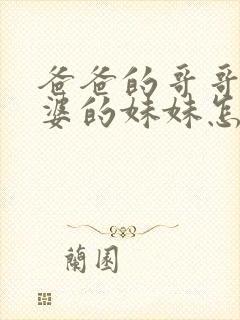 爸爸的哥哥
婆的妹妹怎
蘭園